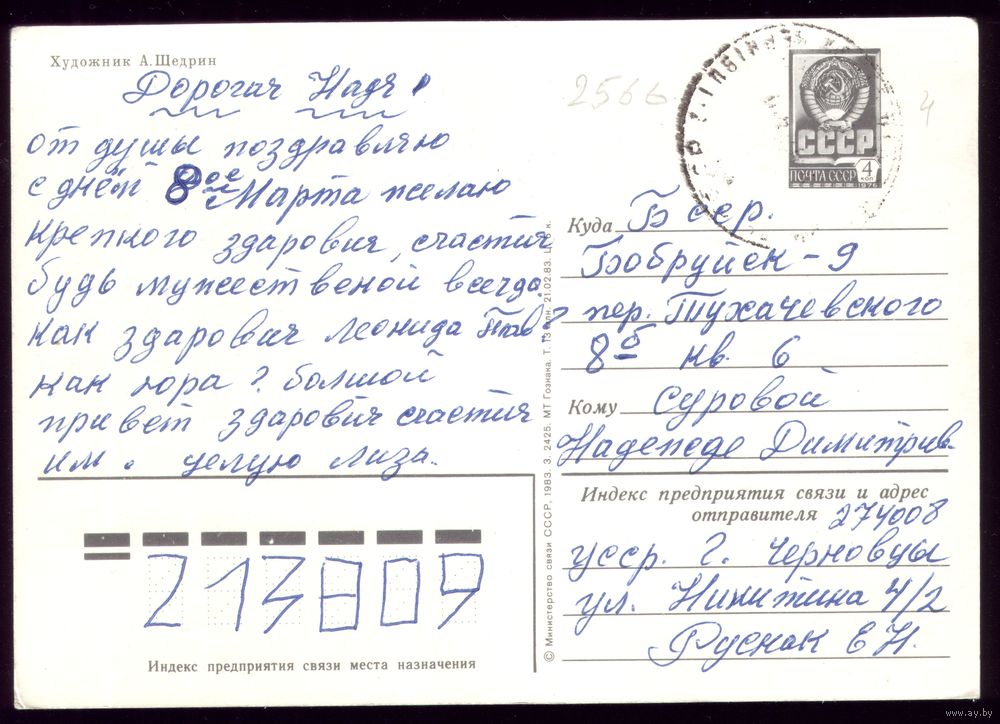 Художник А. Щедрин
Дорогая Надя!
от душы поздравляю
с днём 8ое Марта желаю
крепкого здаровия, счастия
будь мужественой всегда.
как здаровия Леонида
как юра? болшой
привет здаровия счастия
им. целую лиза.
2566
4
СССР
ПОЧТА СССР
4
КОП
1976
Куда Бсср.
Бобруйск-9
пер. Тухачевского
8б кв. 6
Кому Суровой
Надежде Димитрив.
Индекс предприятия связи и адрес
отправителя 274008
усср. г. Черновцы
ул. Никитина 4/2
Руснак Е Н.
213809
Индекс предприятия связи места назначения
© Министерство связи СССР, 1983. З. 2425. МТ Гознака. Т. 13 млн. 21.02.83. Ц. 6 к.
www.ay.by